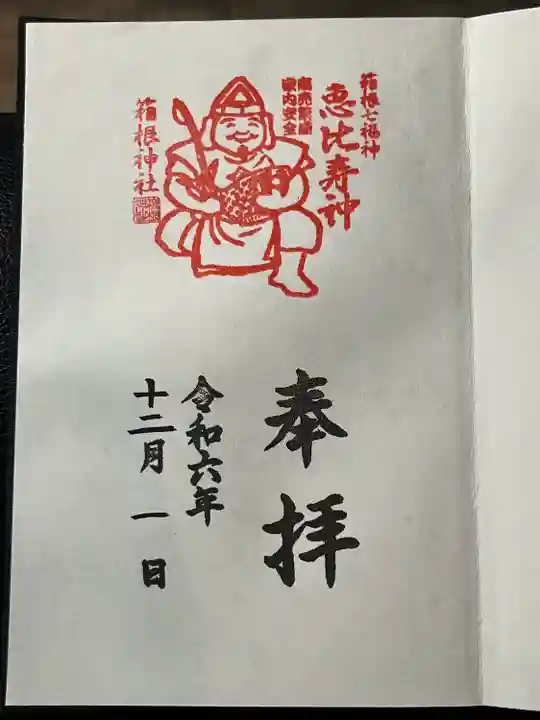 箱根七福神
恵比寿神
商売繁盛
家内安全
箱根神社
奉拝
令和六年
十二月一日